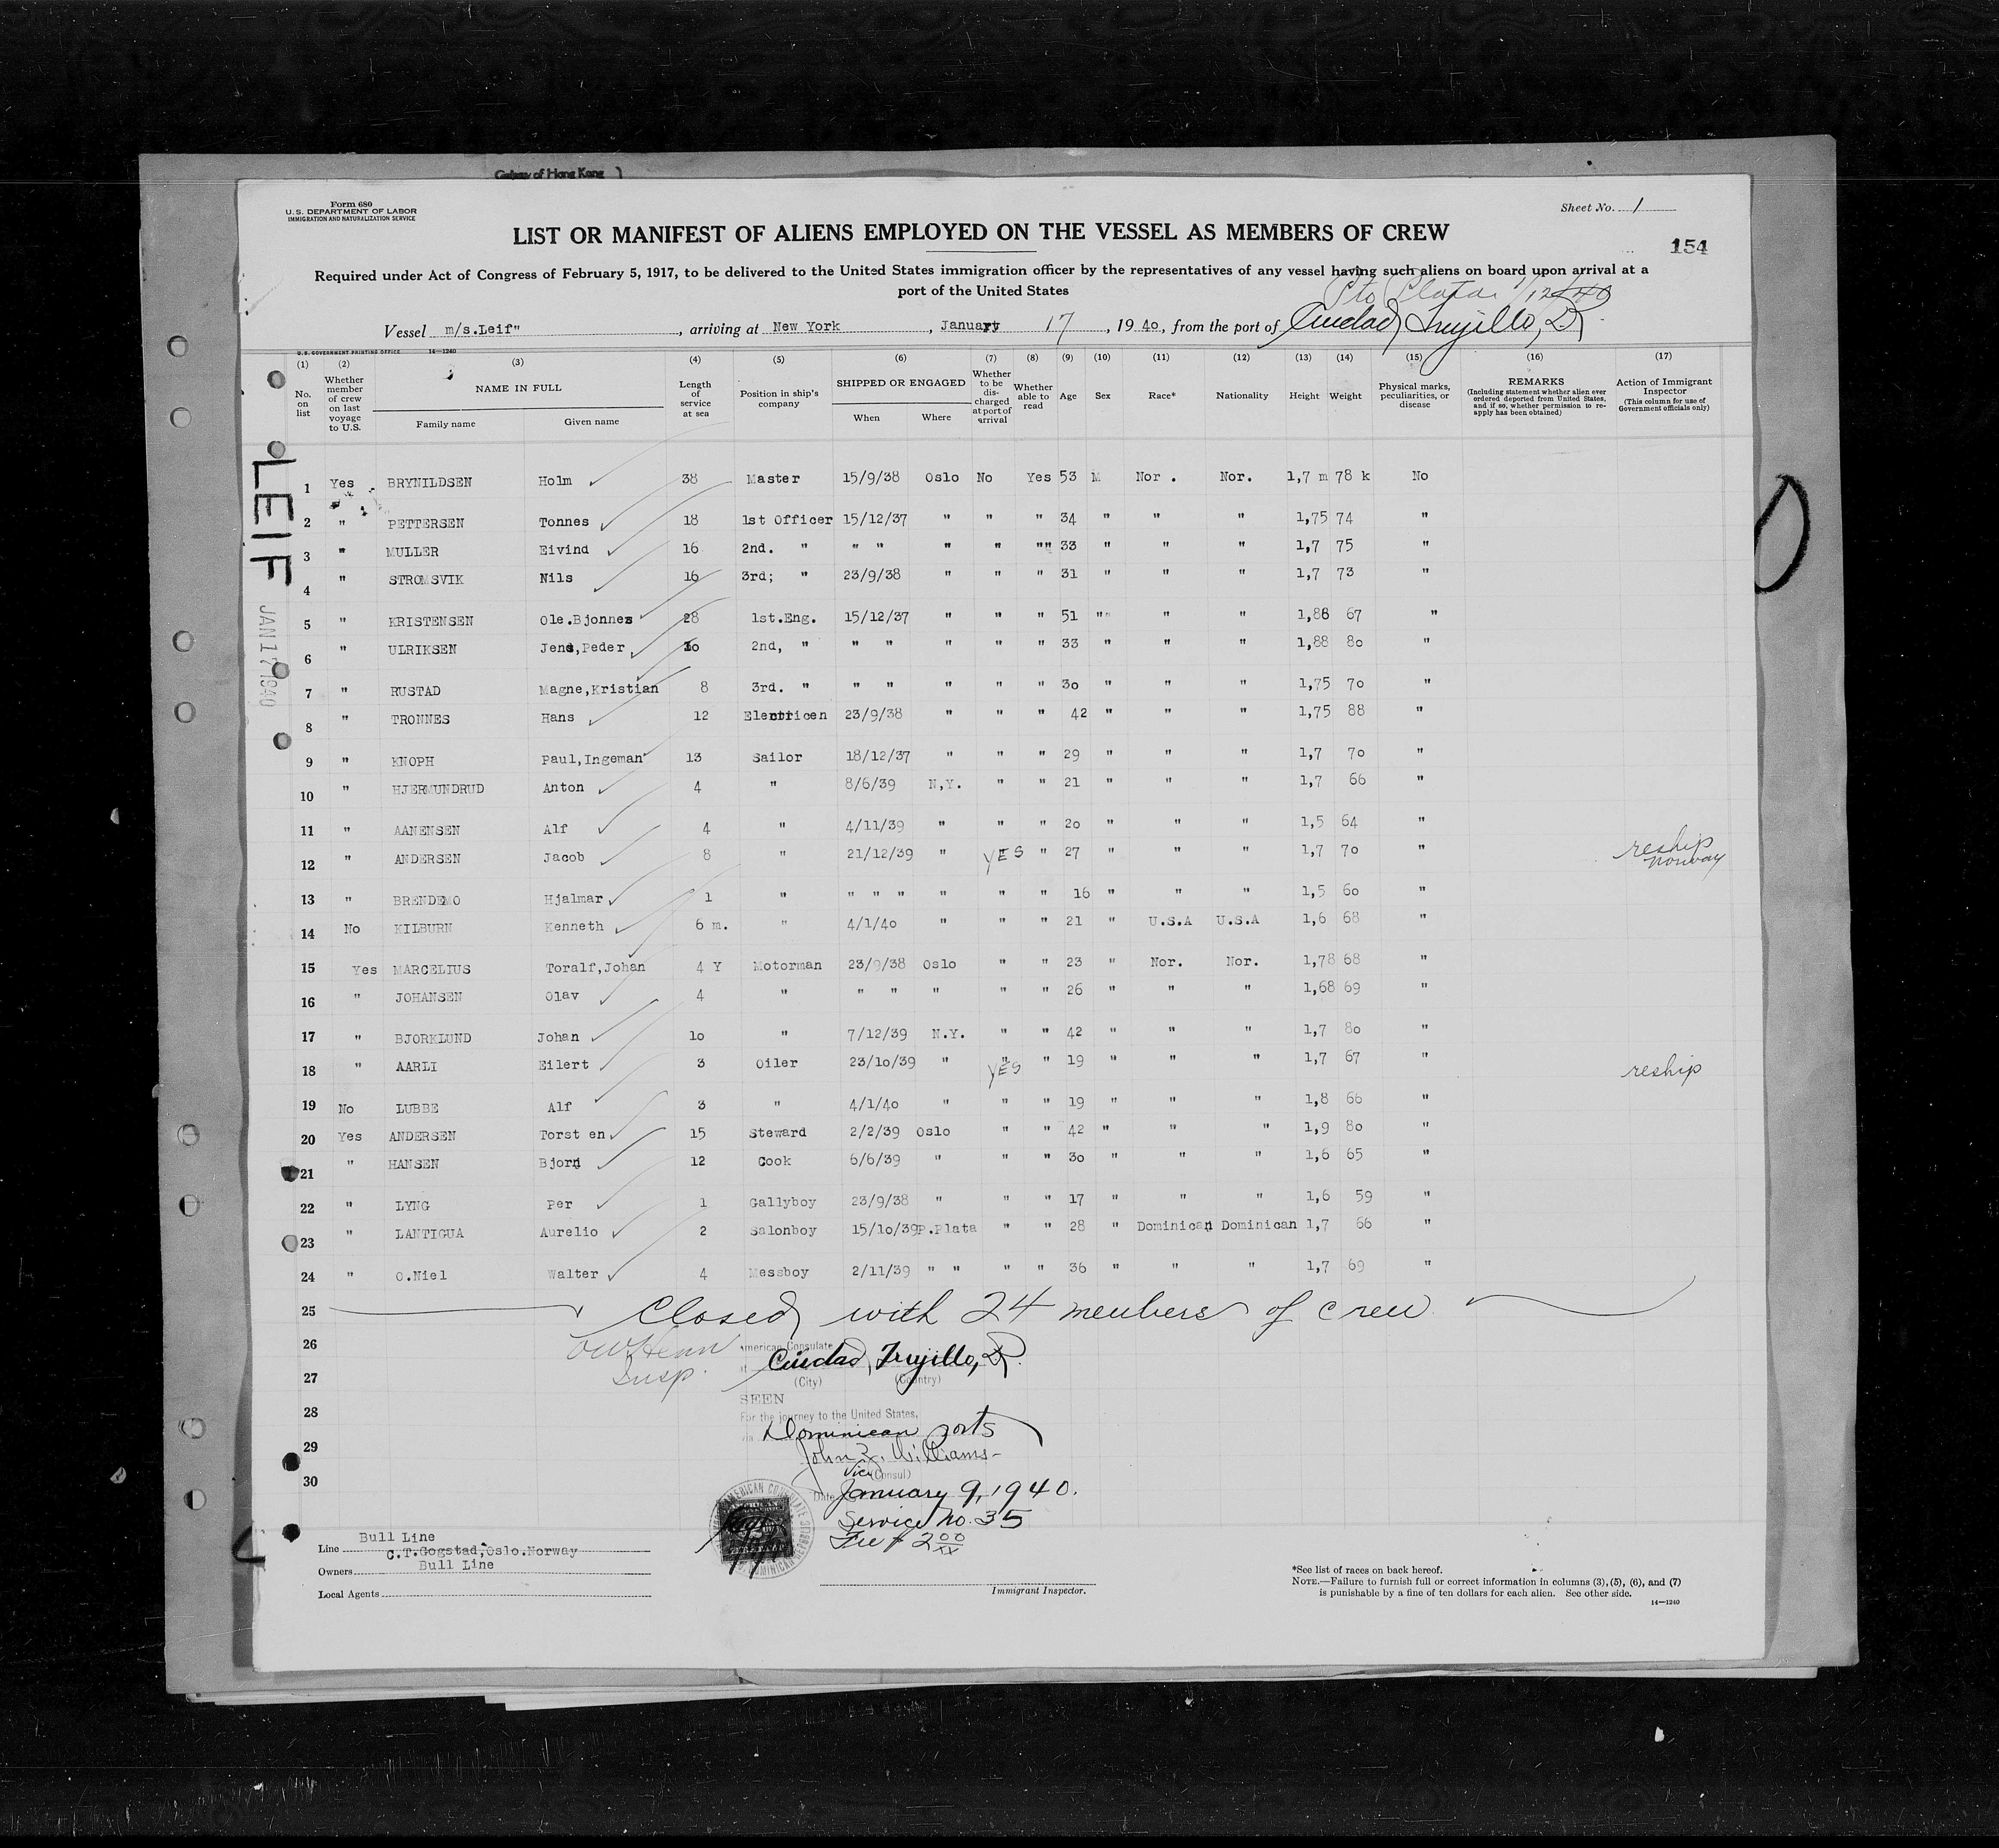 Gateway of Hong Kong )
Form 680
U. S. DEPARTMENT OF LABOR
IMMIGRATION AND NATURALIZATION SERVICE
Sheet No. 1
LIST OR MANIFEST OF ALIENS EMPLOYED ON THE VESSEL AS MEMBERS OF CREW
154
Required under Act of Congress of February 5, 1917, to be delivered to the United States immigration officer by the representatives of any vessel having such aliens on board upon arrival at a
port of the United States
Pto Plata 1/12/40
Vessel m/s.Leif" , arriving at New York , January 17 , 19 40, from the port of Ciudad Trujillo, D.R.
U. S. GOVERNMENT PRINTING OFFICE 14—1240
(1) (2) (3) (4) (5) (6) (7) (8) (9) (10) (11) (12) (13) (14) (15) (16) (17)
No. on list
Whether member of crew on last voyage to U.S.
NAME IN FULL
Family name Given name
Length of service at sea
Position in ship's company
SHIPPED OR ENGAGED
When Where
Whether to be discharged at port of arrival
Whether able to read
Age Sex Race* Nationality Height Weight
Physical marks, peculiarities, or disease
REMARKS
(Including statement whether alien ever ordered deported from United States, and if so, whether permission to reapply has been obtained)
Action of Immigrant Inspector
(This column for use of Government officials only)
LEIF
JAN 17 1940
1 Yes BRYNILDSEN Holm 38 Master 15/9/38 Oslo No Yes 53 M Nor . Nor. 1,7 m 78 k No
2 " PETTERSEN Tonnes 18 1st Officer 15/12/37 " " " 34 " " " 1,75 74 "
3 " MULLER Eivind 16 2nd. " " " " " "" 33 " " " 1,7 75 "
4 " STROMSVIK Nils 16 3rd; " 23/9/38 " " " 31 " " " 1,7 73 "
5 " KRISTENSEN Ole.Bjonnes 28 1st.Eng. 15/12/37 " " " 51 "" " " 1,88 67 "
6 " ULRIKSEN Jens,Peder 10 2nd, " " " " " " 33 " " " 1,88 80 "
7 " RUSTAD Magne,Kristian 8 3rd. " " " " " " 30 " " " 1,75 70 "
8 " TRONNES Hans 12 Electricen 23/9/38 " " " 42 " " " 1,75 88 "
9 " KNOPH Paul,Ingeman 13 Sailor 18/12/37 " " " 29 " " " 1,7 70 "
10 " HJERMUNDRUD Anton 4 " 8/6/39 N,Y. " " 21 " " " 1,7 66 "
11 " AANENSEN Alf 4 " 4/11/39 " " " 20 " " " 1,5 64 "
12 " ANDERSEN Jacob 8 " 21/12/39 " YES " 27 " " " 1,7 70 " reship Norway
13 " BRENDEMO Hjalmar 1 " " " " " " " 16 " " " 1,5 60 "
14 No KILBURN Kenneth 6 m. " 4/1/40 " " " 21 " U.S.A U.S.A 1,6 68 "
15 Yes MARCELIUS Toralf,Johan 4 Y Motorman 23/9/38 Oslo " " 23 " Nor. Nor. 1,78 68 "
16 " JOHANSEN Olav 4 " " " " " " 26 " " " 1,68 69 "
17 " BJORKLUND Johan 10 " 7/12/39 N.Y. " " 42 " " " 1,7 80 "
18 " AARLI Eilert 3 Oiler 23/10/39 " " YES " 19 " " " 1,7 67 " reship
19 No LUBBE Alf 3 " 4/1/40 " " " 19 " " " 1,8 66 "
20 Yes ANDERSEN Torst en 15 Steward 2/2/39 Oslo " " 42 " " " 1,9 80 "
21 " HANSEN Bjorn 12 Cook 6/6/39 " " " 30 " " " 1,6 65 "
22 " LYNG Per 1 Gallyboy 23/9/38 " " " 17 " " " 1,6 59 "
23 " LANTIGUA Aurelio 2 Salonboy 15/10/39 P.Plata " " 28 " Dominican Dominican 1,7 66 "
24 " O.Niel Walter 4 Messboy 2/11/39 " " " " 36 " " " 1,7 69 "
25 Closed with 24 members of crew
26 American Consulate
Insp.
Ciudad Trujillo, D.R.
27 (City) (Country)
SEEN
28 For the journey to the United States,
via Dominican ports
29 John Williams
Vice (Consul)
30
Date January 9, 1940.
Service No. 35
Fee $ 2 00/xx
Line Bull Line
Owners C.T.Gogstad,Oslo.Norway
Local Agents Bull Line
Immigrant Inspector.
*See list of races on back hereof.
NOTE.—Failure to furnish full or correct information in columns (3), (5), (6), and (7)
is punishable by a fine of ten dollars for each alien. See other side.
14—1240